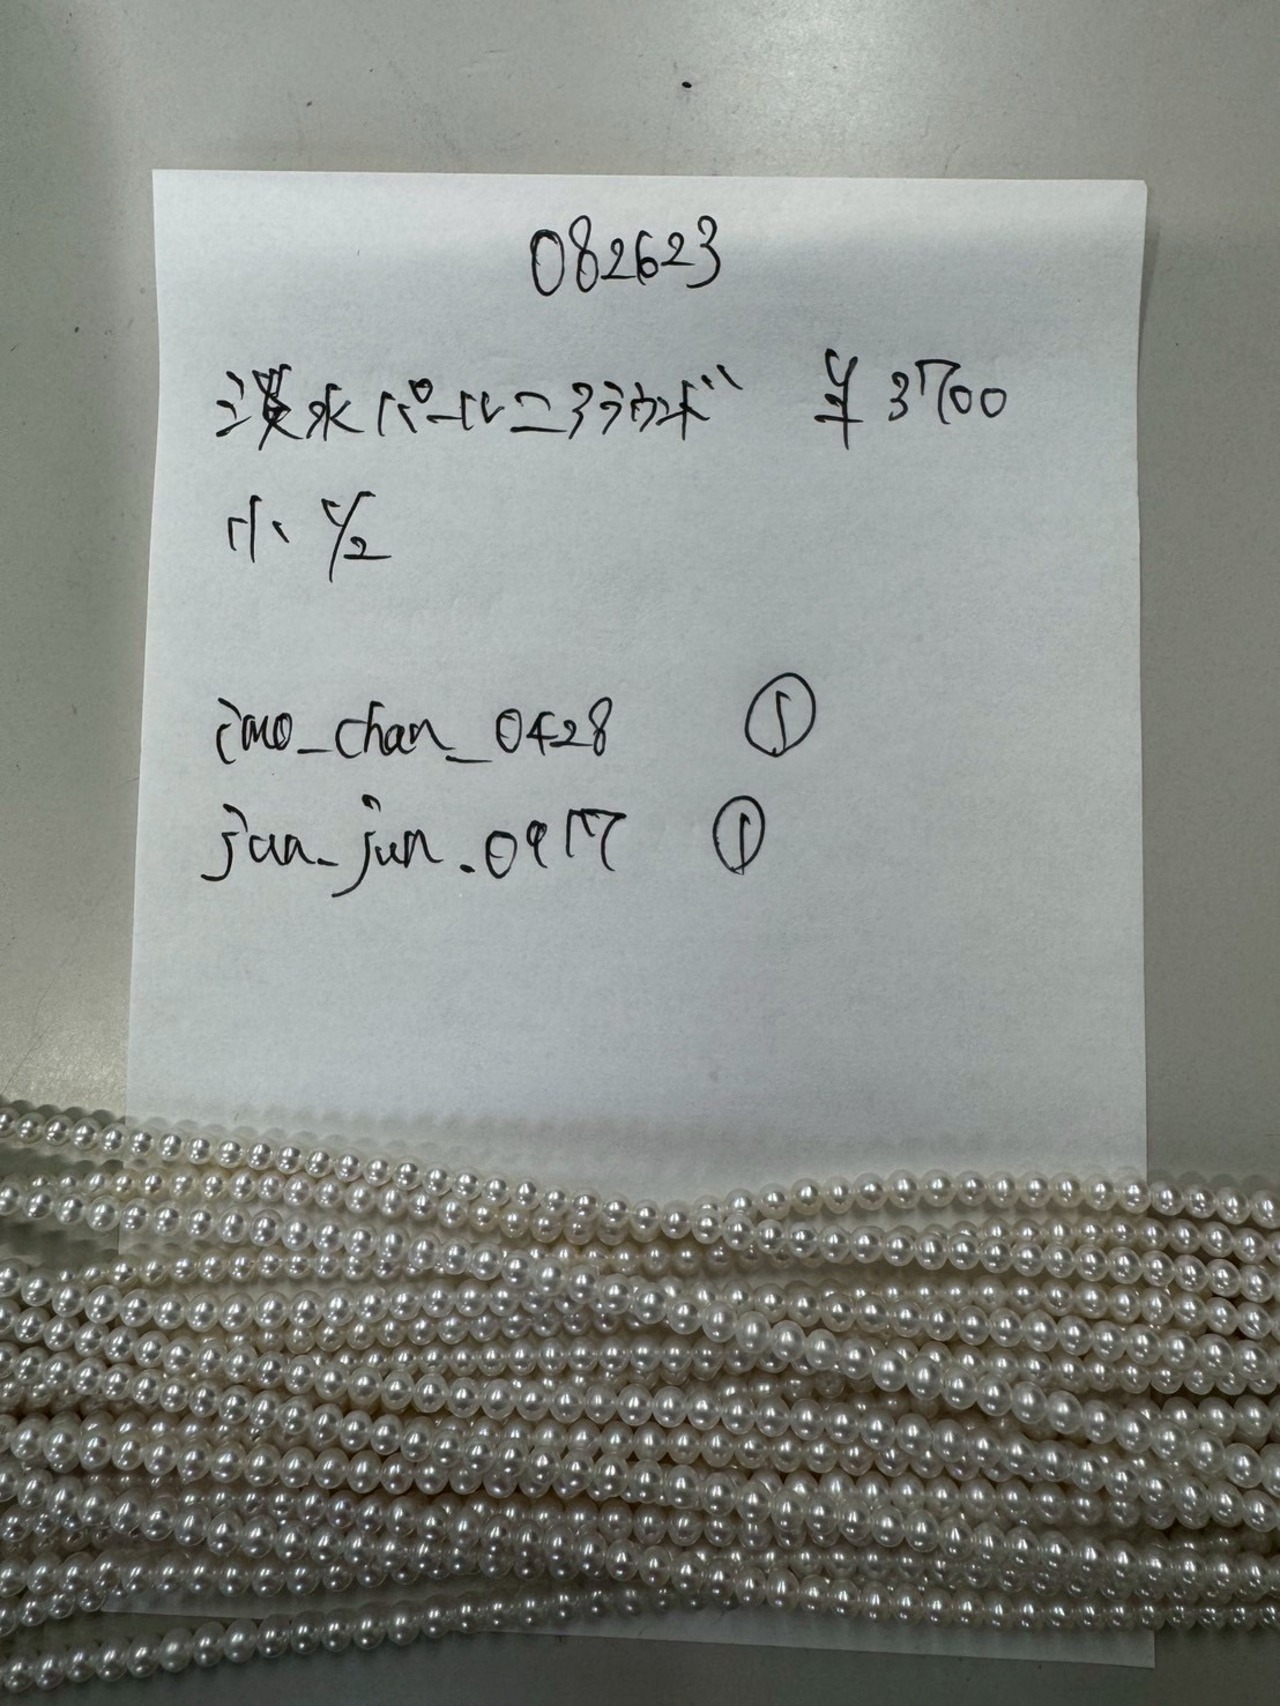 082623
淡水パールニアラウンド ¥3700
小 1/2
imo_chan_0428 ①
jun_jun.0917 ①